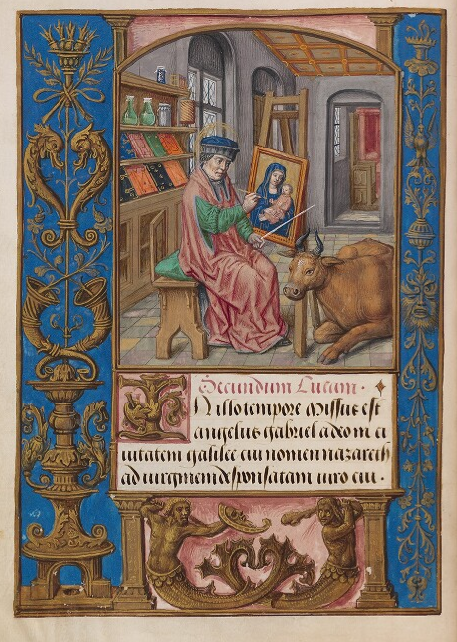 Secundum Lucam.
In illo tempore Missus est
angelus gabriel a deo in ci
uitatem galilee cui nomen nazareth
ad uirginem desponsatam uiro cui.